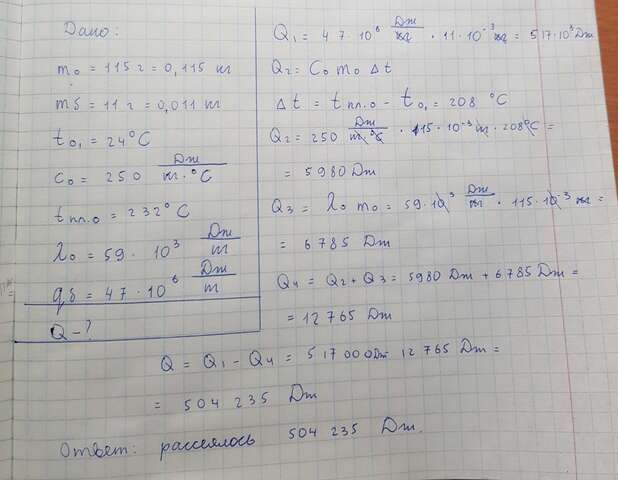 Дано:
m₀ = 115 г = 0,115 кг
mб = 11 г = 0,011 кг
t₀₁ = 24°C
c₀ = 250 Дж/кг·°C
tпл.о = 232°C
λ₀ = 59 · 10³ Дж/кг
qб = 47 · 10⁶ Дж/кг
Q – ?
Q₁ = 47·10⁶ Дж/кг · 11·10⁻³ кг = 517·10³ Дж
Q₂ = C₀ m₀ Δt
Δt = tпл.о - t₀₁ = 208 °C
Q₂ = 250 Дж/кг·°C · 115·10⁻³ кг · 208°C =
= 5980 Дж
Q₃ = λ₀ m₀ = 59·10³ Дж/кг · 115·10⁻³ кг =
= 6785 Дж
Q₄ = Q₂ + Q₃ = 5980 Дж + 6785 Дж =
= 12 765 Дж
Q = Q₁ - Q₄ = 517 000 Дж 12 765 Дж =
= 504 235 Дж
Ответ: рассеялось 504 235 Дж.